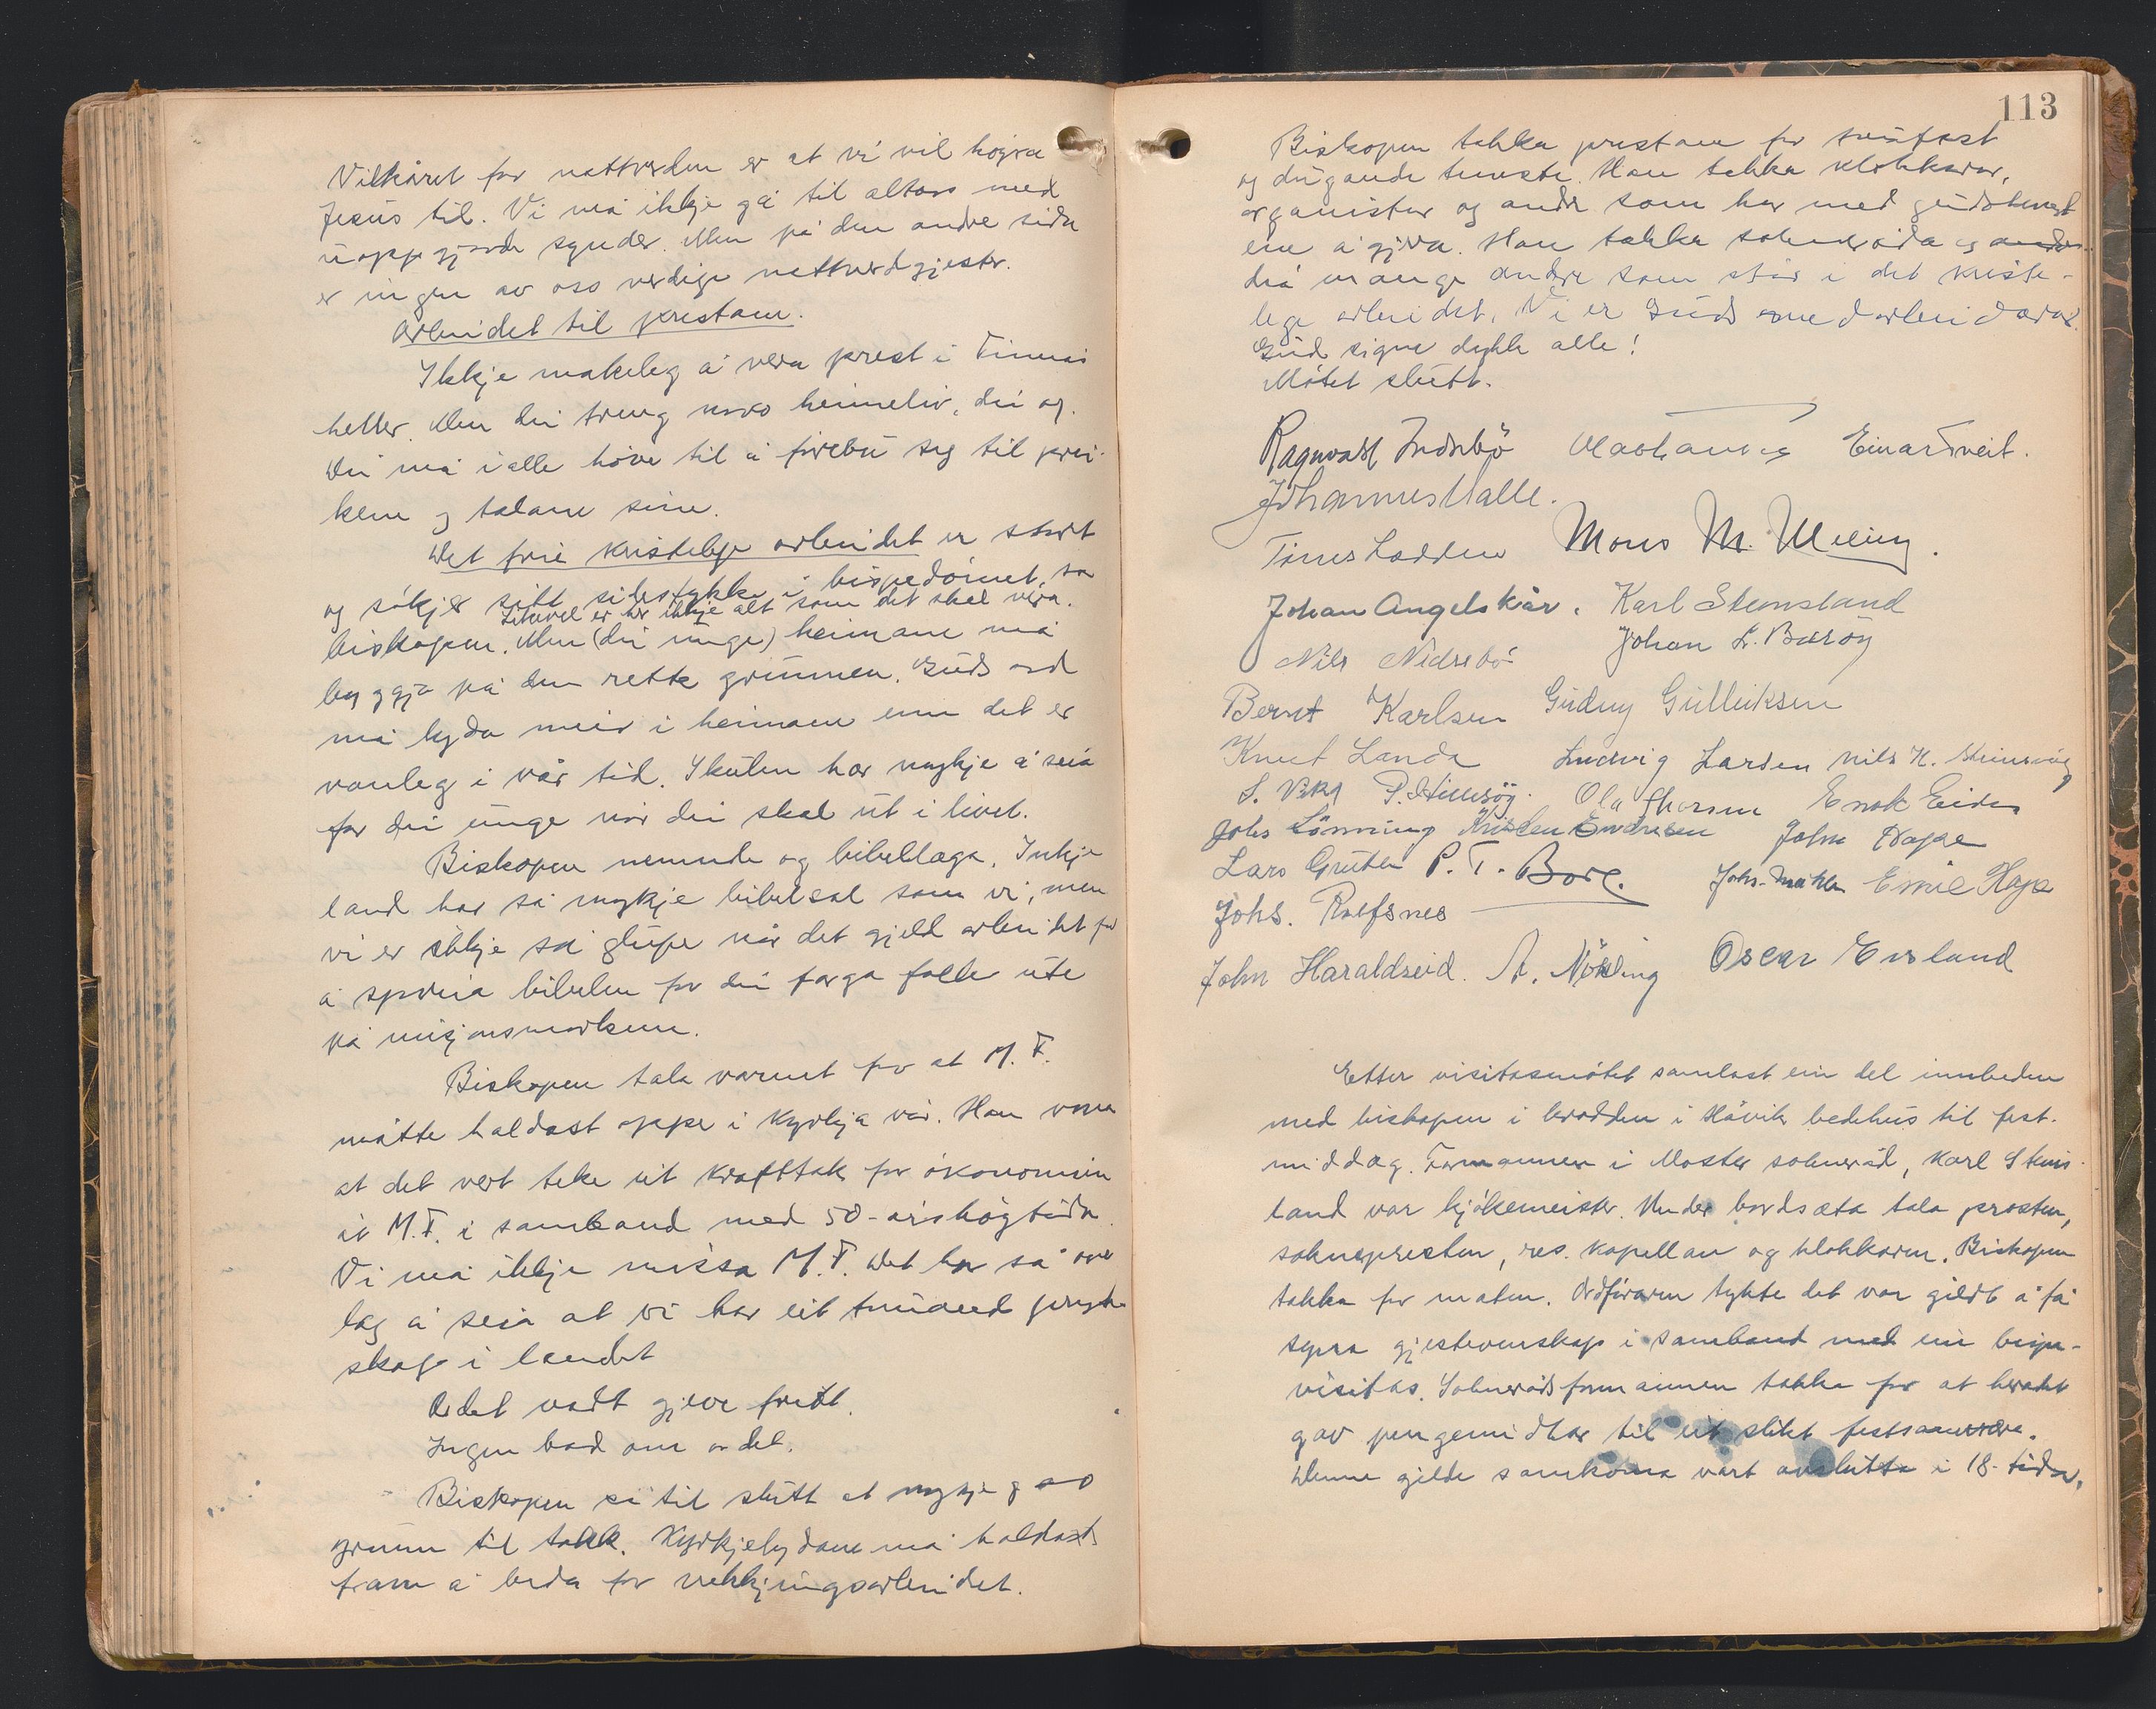 Vilkåret for nattverden er at vi vil høyra
Jesus til. Vi må ikkje gå til altars med
uoppgjorde synder. Men på den andre sida
er ingen av oss verdige nattverdgjester.
Arbeidet til prestane.
Ikkje makeleg å vera prest i Finnås
heller. Men dei treng noko heimeliv, dei og.
Dei må i alle høve til å fyrebu seg til prei-
kene og talane sine.
Det frie kristelege arbeidet er stort
og søkjer sitt sidestykke i bispedømet, sa
Likevel er her ikkje alt som det skal vera.
biskopen. Men (dei unge) heimane må
byggja på den rette grunnen. Guds ord
må lyda meir i heimane enn det er
vanleg i vår tid. Skulen har mykje å seia
for dei unge når dei skal ut i livet.
Biskopen nemnde og bibellaga. Inkje
land har så mykje bibelsal som vi, men
vi er ikkje så glupe når det gjeld arbeidet for
å spreia bibelen for dei farga folk ute
på misjonsmarkene.
Biskopen tala varmt for at M.F.
måtte haldast oppe i kyrkja vår. Han vona
at det vert teke eit krafttak for økonomien
åt M.F. i samband med 50-årshøgtida.
Vi må ikkje missa M.F. Det har så ove
lag å seia at vi har eit truande preste-
skap i landet
Ordet vart gjeve fritt.
Ingen bad om ordet.
Biskopen sa til slutt at mykje gav
grunn til takk. Kyrkjelydane må haldast
fram å beda for vekkjingsarbeidet.
113
Biskopen takka prestane for trufast
og dugande teneste. Han takka klokkarar,
organistar og andre som har med gudstenest
ene å gjera. Han takka sokneråda og andre
dei mange andre som står i det kriste-
lege arbeidet. Vi er Guds medarbeidarar.
Gud signe dykk alle!
Møtet slutt.
Ragnvald Indrebø Einar Tveit.
Johannes Valle.
Tønes Lodden Mons M.
Johan Angelskår. Karl Stensland
Nils Nedrebø Johan L. Barøy
Bernt Karlsen Gudny Gulleiksen
Knut Landa Ludvig Larsen Nils H. Steinsvåg
S. Vika P. Ola Thorsen Enok Eide
Johs Lønning Kristen Endresen John Hope
Lars Gruten P. T. Johs. Mæhle Emil Hope
Johs. Roefsnes
John Haraldseid. A. Nökling Oscar Ersland
Etter visitasmøtet samlast ein del innbedne
med biskopen i brodden i Håvik bedehus til fest-
middag. Formannen i Moster sokneråd, Karl Stens-
land var kjøkemeister. Under bordsæta tala prosten,
soknepresten, res. kapellan og klokkaren. Biskopen
takka for maten. Ordføraren tykte det var gildt å få
syna gjestevenskap i samband med ein bispe-
visitas. Soknerådsformannen takka for at heradet
gav pengemidlar til eit slikt festsamvære.
Denne gilde samkoma vart avslutta i 18-tida.